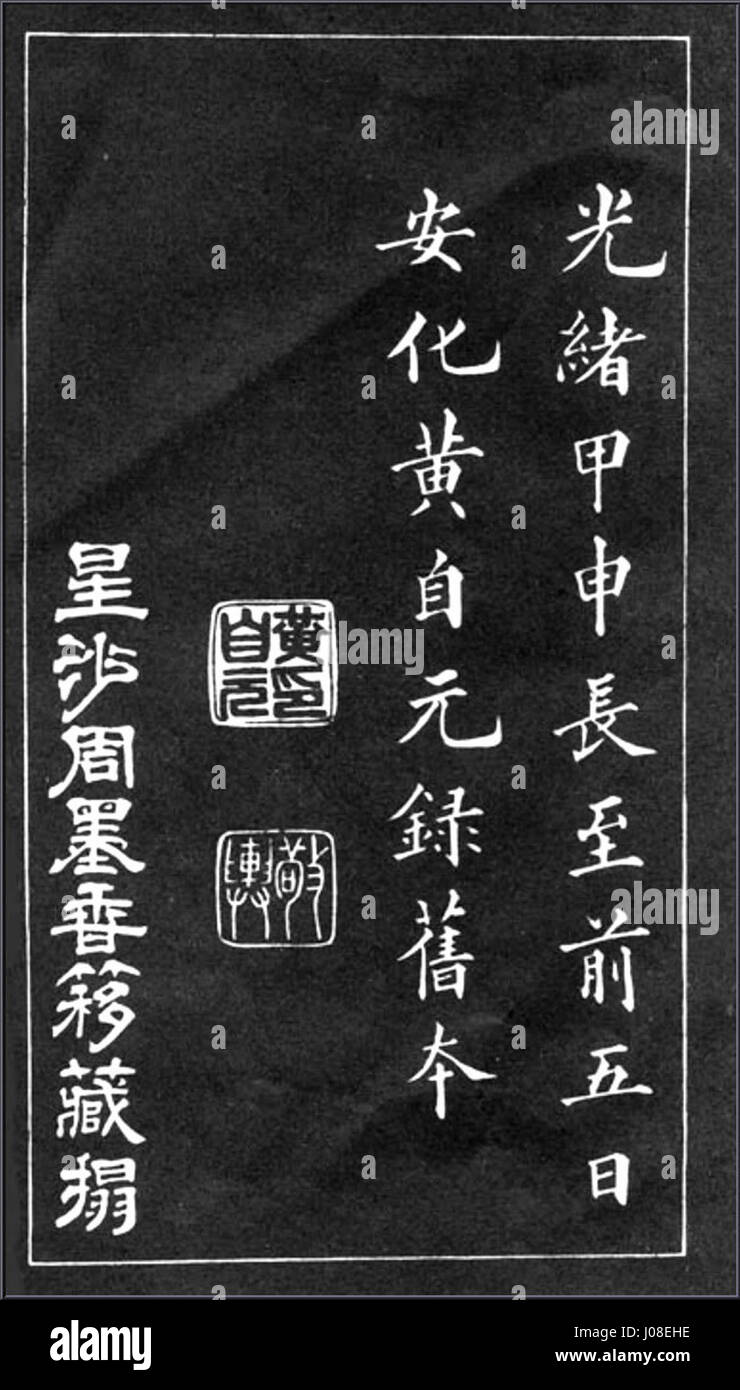 光緒甲申長至前五日
安化黄自元録舊夲
黄印
自元
敬輿
星沙周墨香簃藏搨
alamy
alamy
alamy
alamy
Image ID: J08EHE
www.alamy.com